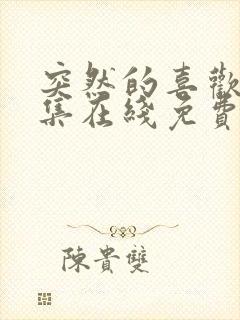 突然的喜歡
集在綫免費
陳貴雙